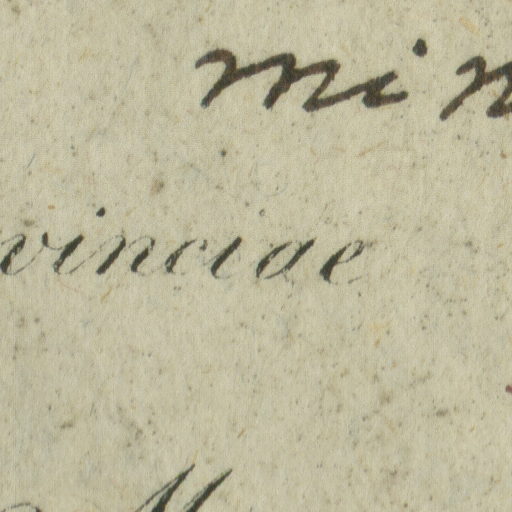 min
vinciae
M